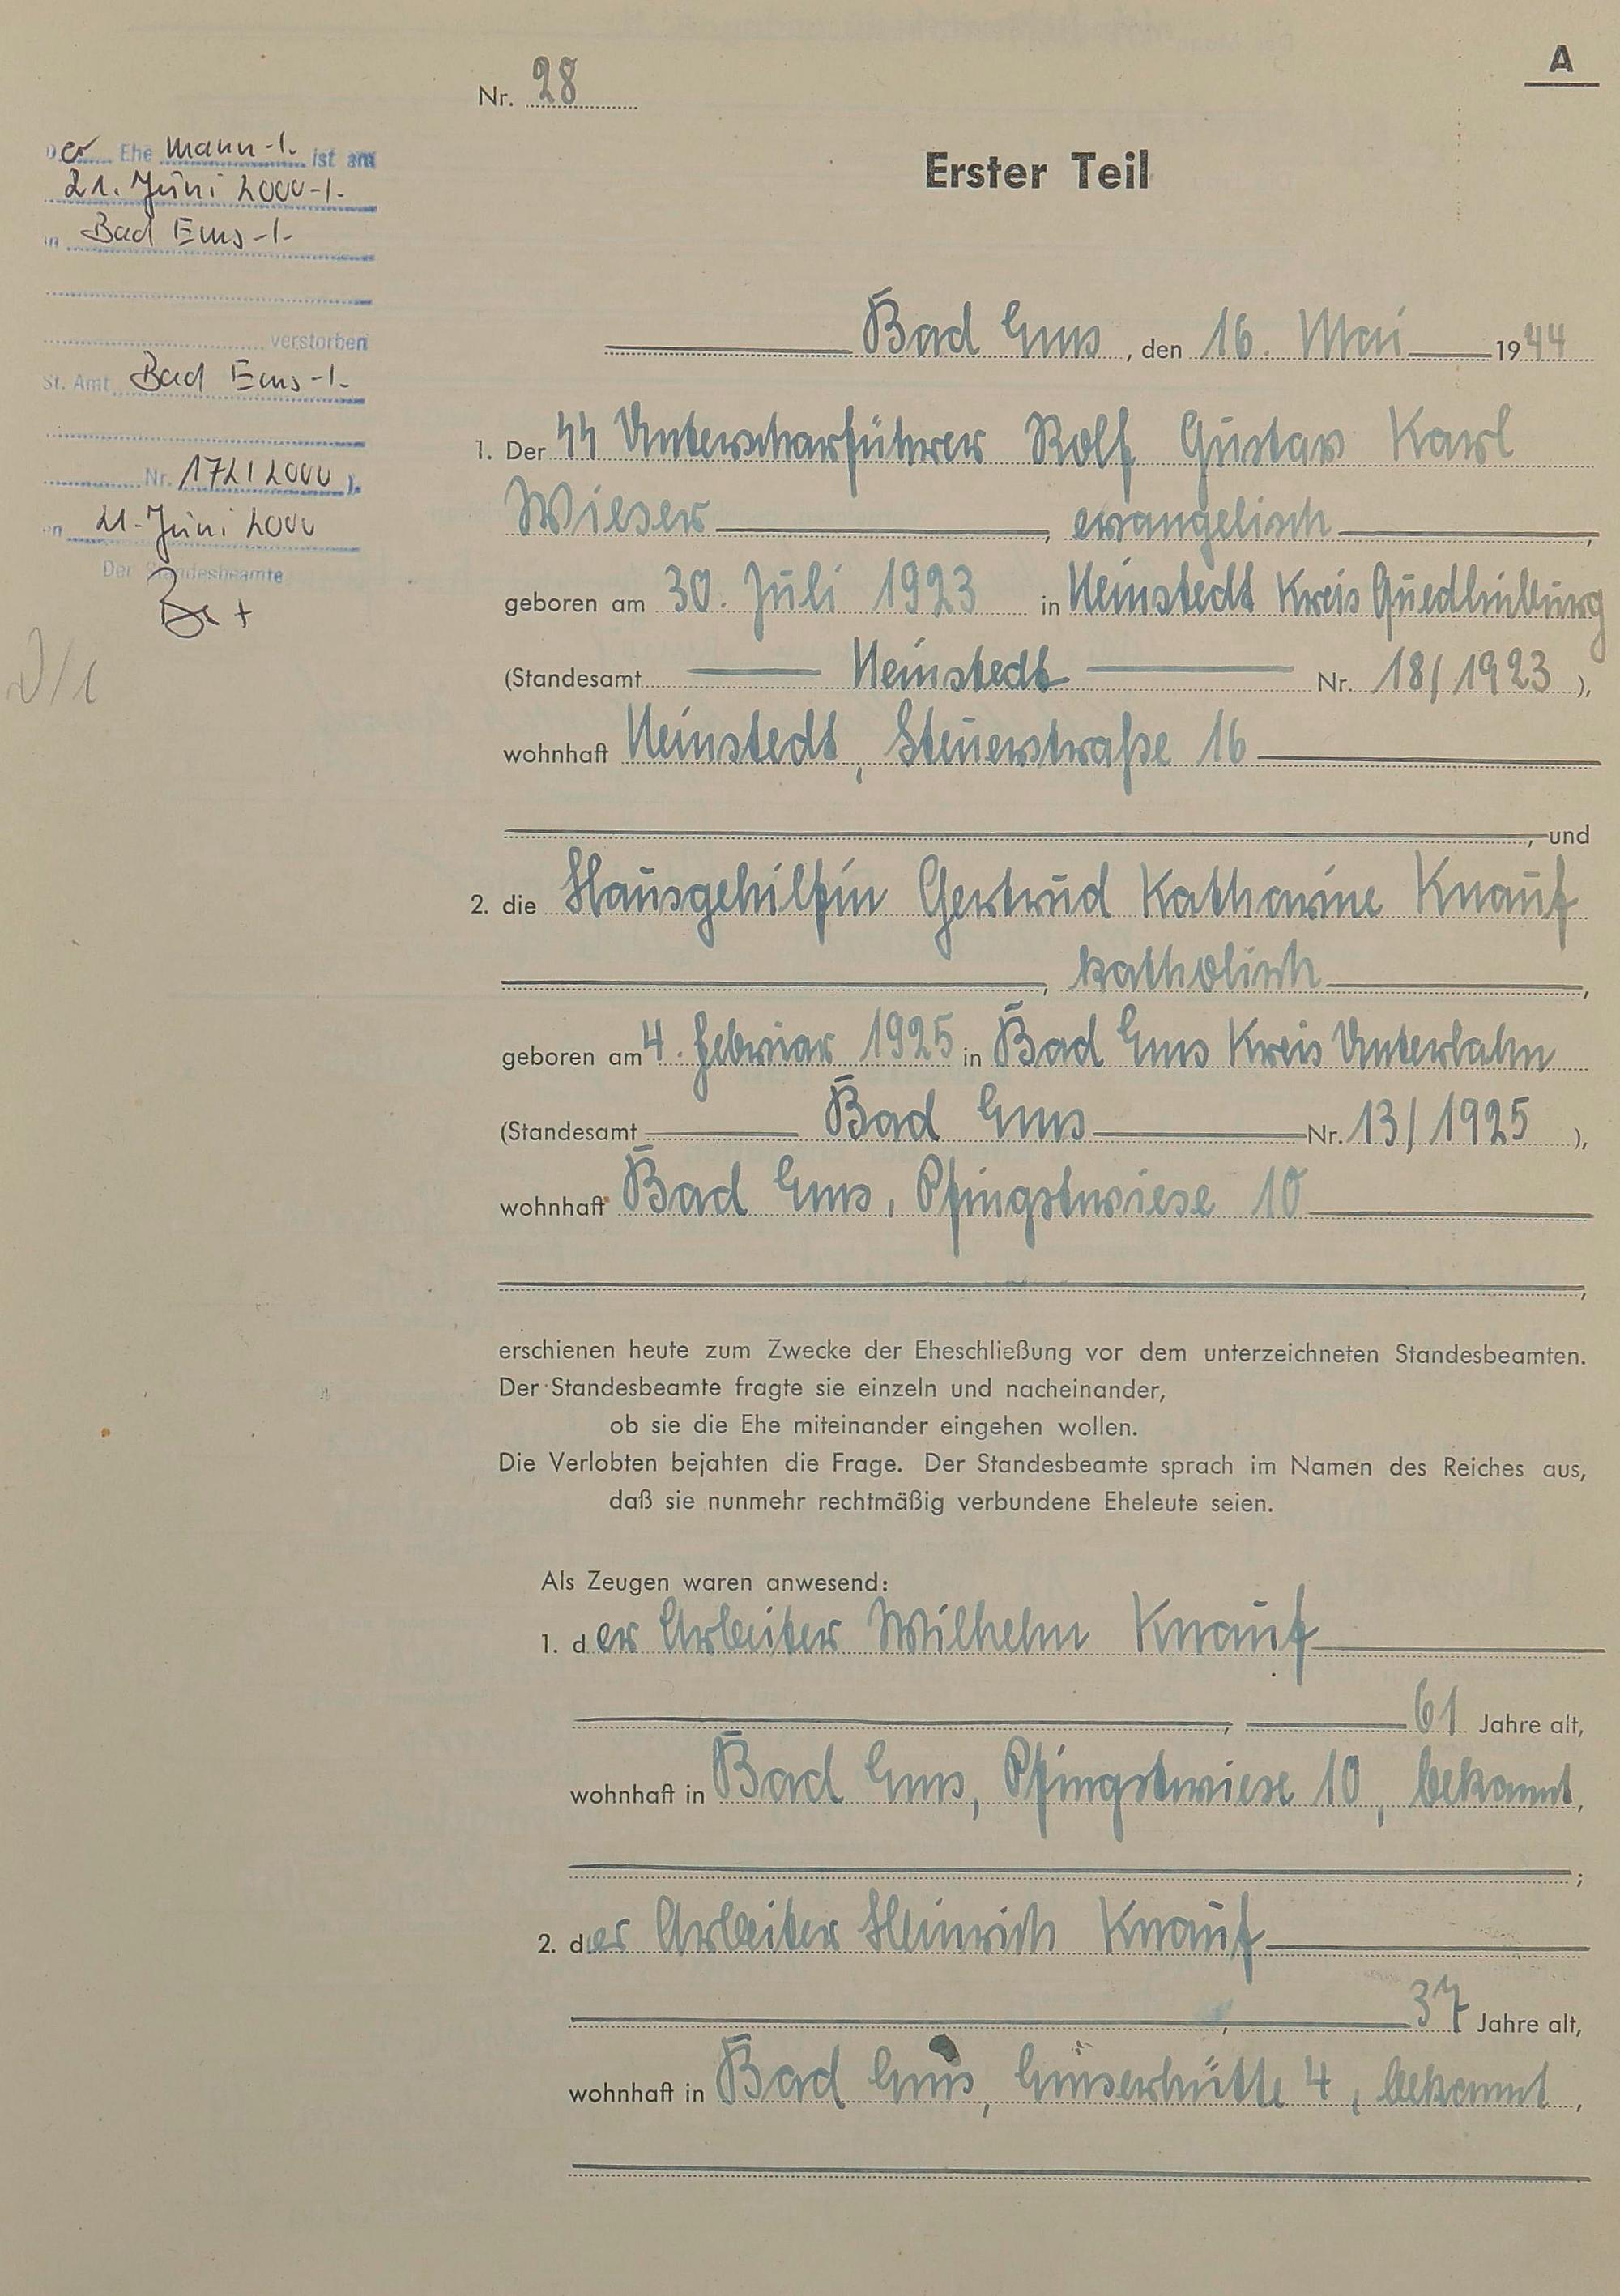 A
Nr. 28
Erster Teil
Der Ehe mann-/. ist am
21. Juni 2000-/.
in Bad Ems-/-
verstorben
St. Amt Bad Ems-/.
Nr. 172/2000 ).
21. Juni 2000
Der Standesbeamte
Bad Ems, den 16. Mai 1944
1. Der SS Unterscharführer Rolf Gustav Karl
Wieser, evangelisch,
geboren am 30. Juli 1923 in Neinstedt Kreis Quedlinburg
(Standesamt Neinstedt Nr. 18/1923),
wohnhaft Neinstedt, Steuerstraße 16
, und
2. die Hausgehilfin Gertrud Katharine Knauf
, katholisch,
geboren am 4. Februar 1925 in Bad Ems Kreis Unterlahn
(Standesamt Bad Ems Nr. 13/1925),
wohnhaft Bad Ems, Pfingstwiese 10
,
erschienen heute zum Zwecke der Eheschließung vor dem unterzeichneten Standesbeamten.
Der Standesbeamte fragte sie einzeln und nacheinander,
ob sie die Ehe miteinander eingehen wollen.
Die Verlobten bejahten die Frage. Der Standesbeamte sprach im Namen des Reiches aus,
daß sie nunmehr rechtmäßig verbundene Eheleute seien.
Als Zeugen waren anwesend:
1. der Arbeiter Wilhelm Knauf
, 61 Jahre alt,
wohnhaft in Bad Ems, Pfingstwiese 10, bekannt,
;
2. der Arbeiter Heinrich Knauf
, 37 Jahre alt,
wohnhaft in Bad Ems, Emserhütte 4, bekannt,